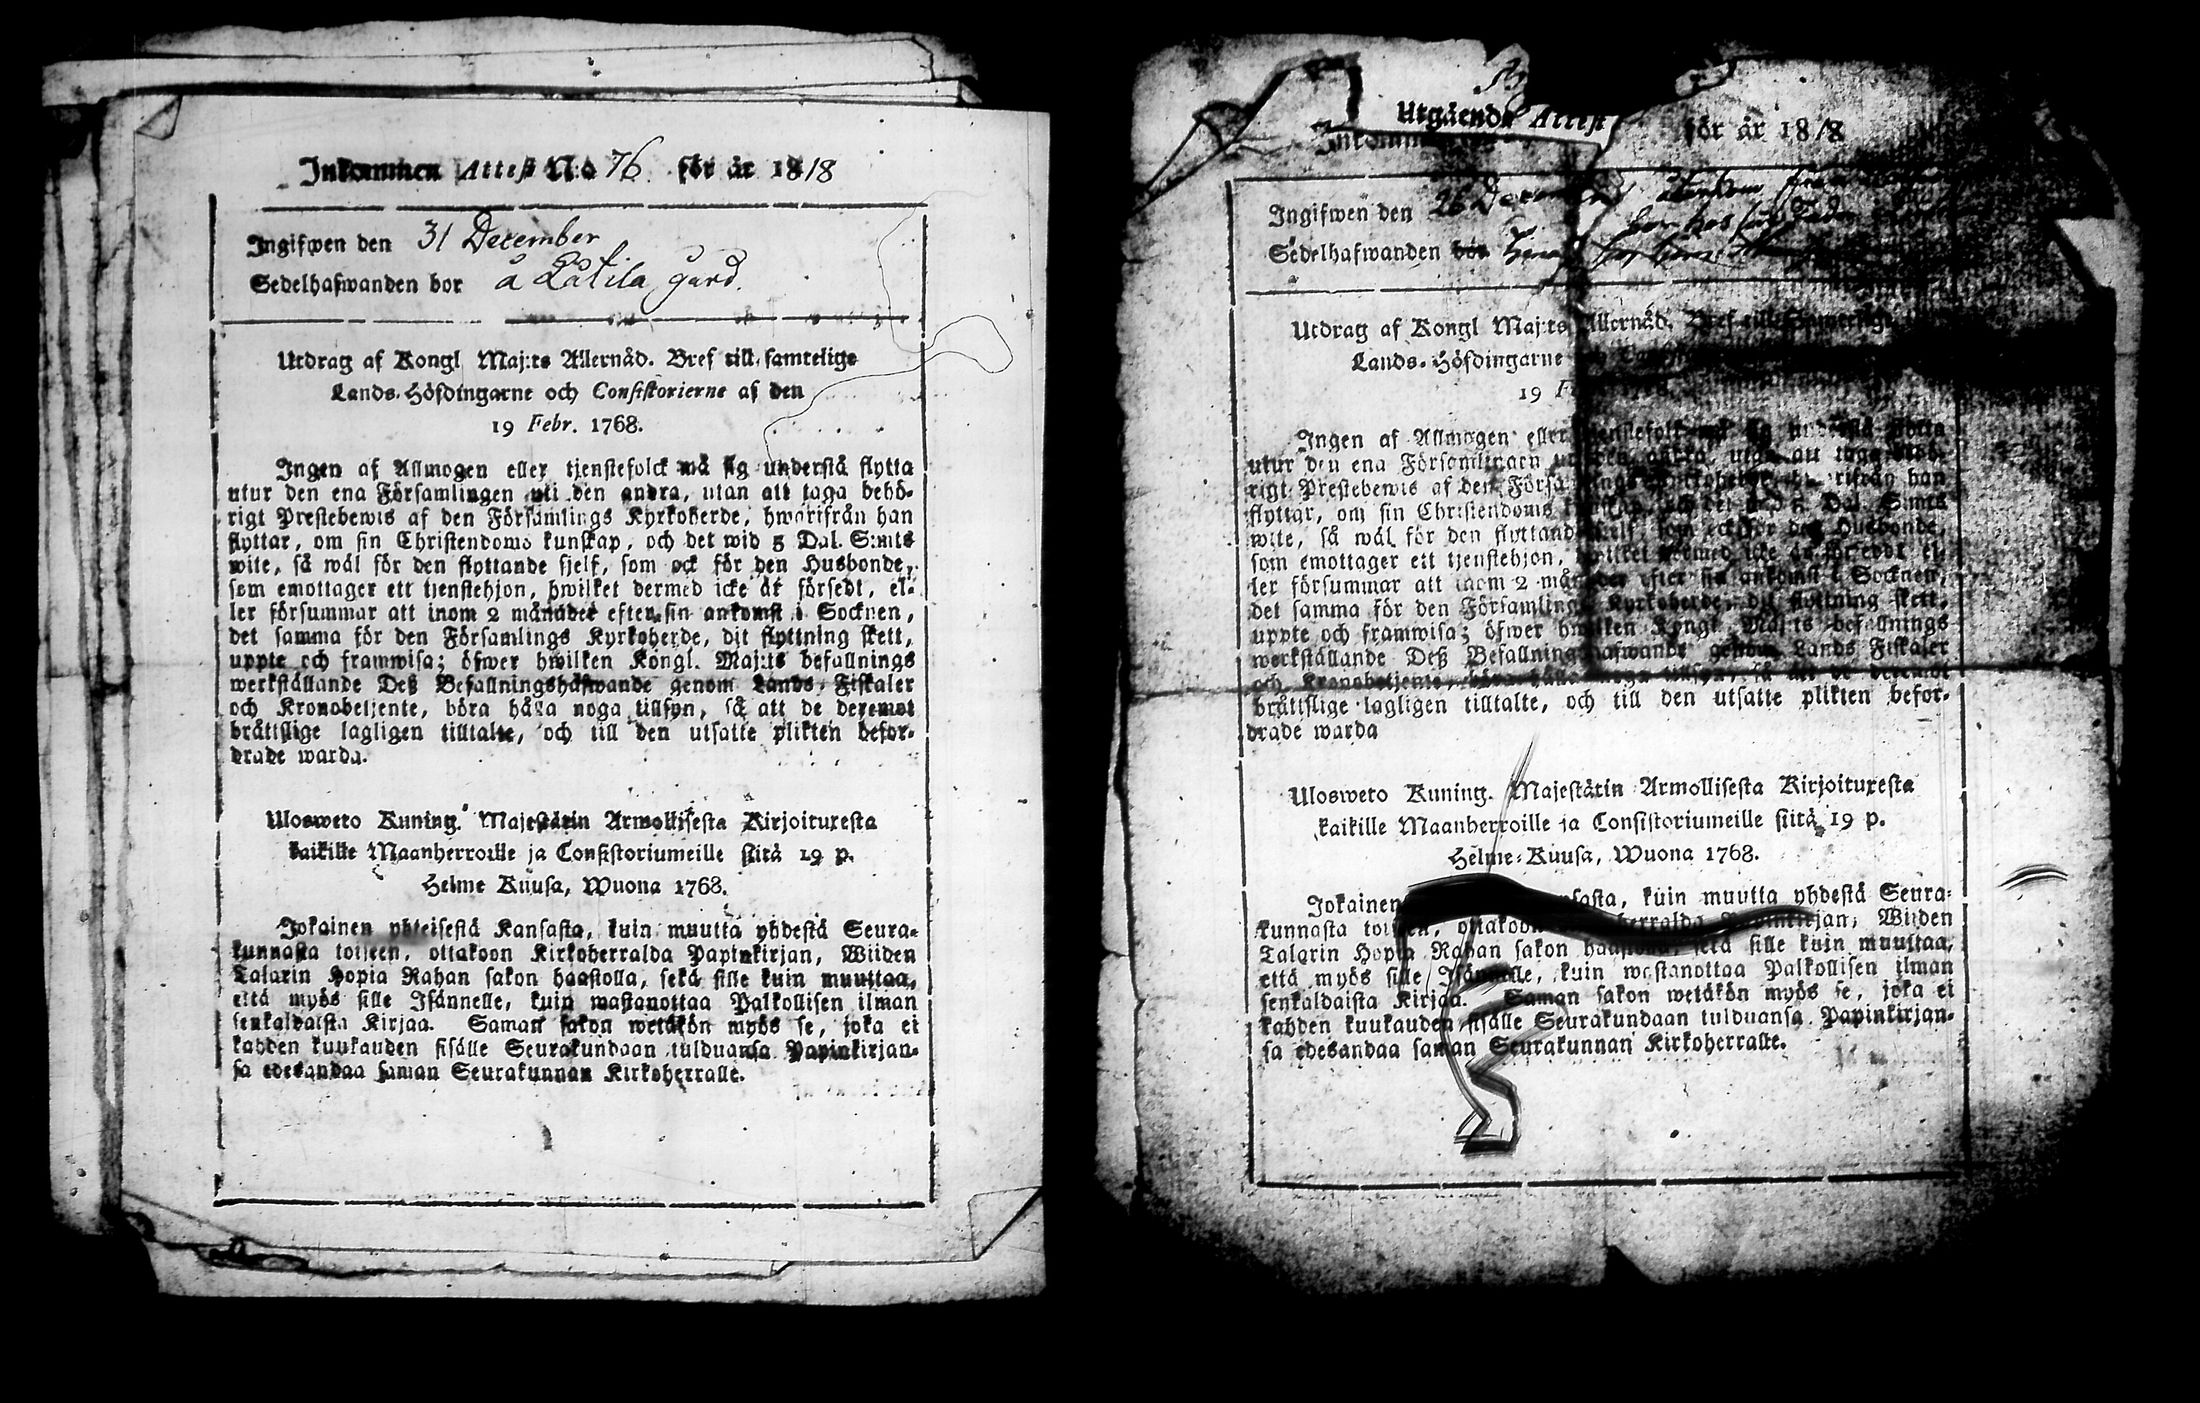 Inkommen Attest N:o 76. för år 1818
Ingifwen den 31 December
Sedelhafwanden bor å Låtila gård.
Utdrag af Kongl. Maj:ts Allernåd. Bref till samtelige
Lands-Höfdingarne och Consistorierne af den
19 Febr. 1768.
Ingen af Allmogen eller tjenstefolck må sig understå flytta
utur den ena Församlingen uti den andra, utan att taga behö-
rigt Prestebewis af den Församlings Kyrkoherde, hwarifrån han
flyttar, om sin Christendoms kunskap, och det wid 5 Dal. S:mts
wite, så wäl för den flyttande sjelf, som ock för den Husbonde,
som emottager ett tjenstehjon, hwilket dermed icke är försedt, el-
ler försummar att inom 2 månader efter sin ankomst i Socknen,
det samma för den Församlings Kyrkoherde, dit flyttning skett,
uppte och framwisa; öfwer hwilken Kongl. Maj:ts befallnings
werkställande Deß Befallningshafwande genom Lands-Fiskaler
och Kronobetjente, böra hålla noga tillsyn, så att de deremot
bråttslige lagligen tilltalte, och till den utsatte plikten befor-
drade warda.
Ulosweto Kuning. Majestätin Armollisesta Kirjoituxesta
kaikille Maanherroille ja Consistoriumeille siitä 19 p.
Helme Kuusa, Wuona 1768.
Jokainen yhteisestä Kansasta, kuin muutta yhdestä Seura-
kunnasta toiseen, ottakoon Kirkoherralda Papinkirjan, Wiiden
Talarin Hopia Rahan sakon haastolla, sekä sille kuin muuttaa,
että myös sille Isännelle, kuin wastanottaa Palkollisen ilman
senkaldaista Kirjaa. Saman sakon wetäkön myös se, joka ei
kahden kuukauden sisälle Seurakundaan tulduansa Papinkirjan-
sa edesandaa saman Seurakunnan Kirkoherralle.
Utgående Attest för år 1818
Ingifwen den 26 December
Sedelhafwanden bor
Utdrag af Kongl Maj:ts Allernåd. Bref till
Lands-Höfdingarne
19
Ingen af Allmogen eller tjenstefolck
utur den ena Församlingen utan att taga behö-
rigt Prestebewis af den Församlings Kyrkoherde hwarifrån han
flyttar, om sin Christendoms Dal. S:mts
wite, så wäl för den flyttande sjelf, som ock för den Husbonde,
som emottager ett tjenstehjon, hwilket dermed icke är försedt el-
ler försummar att inom 2 månader efter sin ankomst i Socknen,
det samma för den Församlings Kyrkoherde, dit flyttning skett,
uppte och framwisa; öfwer hwilken Kongl. Maj:ts befallnings
werkställande Deß Befallningshafwande genom Lands Fiskaler
och Kronobetjente, böra hålla noga tillsyn, så att de deremot
bråttslige lagligen tilltalte, och till den utsatte plikten befor-
drade warda
Ulosweto Kuning. Majestätin Armollisesta Kirjoituxesta
kaikille Maanherroille ja Consistoriumeille siitä 19 p.
Helme-Kuusa, Wuona 1768.
Jokainen Kansasta, kuin muutta yhdestä Seura-
kunnasta toiseen, ottakoon Kirkoherralda Papinkirjan, Wiiden
Talarin Hopia Rahan sakon haastolla, sekä sille kuin muuttaa,
että myös sille Isännelle, kuin wastanottaa Palkollisen ilman
senkaldaista Kirjaa. Saman sakon wetäkön myös se, joka ei
kahden kuukauden sisälle Seurakundaan tulduansa Papinkirjan-
sa edesandaa saman Seurakunnan Kirkoherralle.